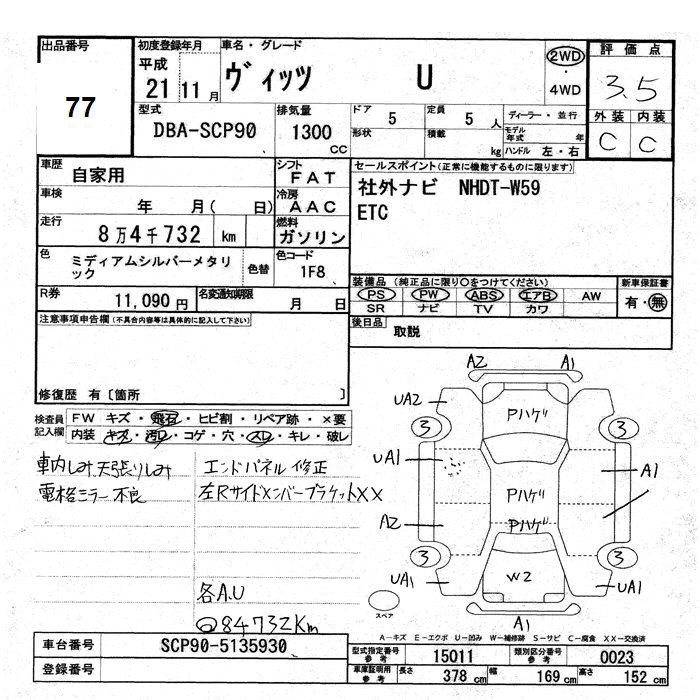 出品番号
77
初度登録年月
平成
21 11 月
車名・グレード
ヴィッツ U
2WD
・
4WD
評価点
3.5
型式
DBA-SCP90
排気量
1300
CC
ドア 5
定員 5 人
ディーラー・並行
形状
積載 kg
モデル年式 年
ハンドル 左・右
外装 内装
C C
車歴
自家用
シフト
FAT
セールスポイント(正常に機能するものに限ります)
社外ナビ NHDT-W59
ETC
車検
年 月( 日)
冷房
AAC
走行
8万4千732 km
燃料
ガソリン
色
ミディアムシルバーメタリック
色替
色コード
1F8
R券
11,090 円
名変通知期限
月 日
装備品 (純正品に限り○をつけてください)
PS PW ABS エアB AW
SR ナビ TV カワ
新車保証書
有・無
後日品 取説
注意事項申告欄(不具合内容等は具体的に記入して下さい)
修復歴 有〔箇所 〕
検査員記入欄
FW キズ・飛石・ヒビ割・リペア跡・×要
内装 キズ・汚レ・コゲ・穴・スレ・キレ・破レ
車内しみ 天張りしみ
電格ミラー不良
エンドパネル修正
左Rサイドメンバーブラケット××
各A.U
84732Km
A2 A1
UA2
Pハゲ
3 3
UA1 A1
Pハゲ
A2
Pハゲ
3 3
UA1 W2 UA1
スペア
A1
A-キズ E-エクボ U-凹み W-補修跡 S-サビ C-腐食 XX-交換済
車台番号 SCP90-5135930
登録番号
型式指定番号 参考 15011
類別区分番号 参考 0023
車庫証明用 参考
長さ 378 cm 幅 169 cm 高さ 152 cm